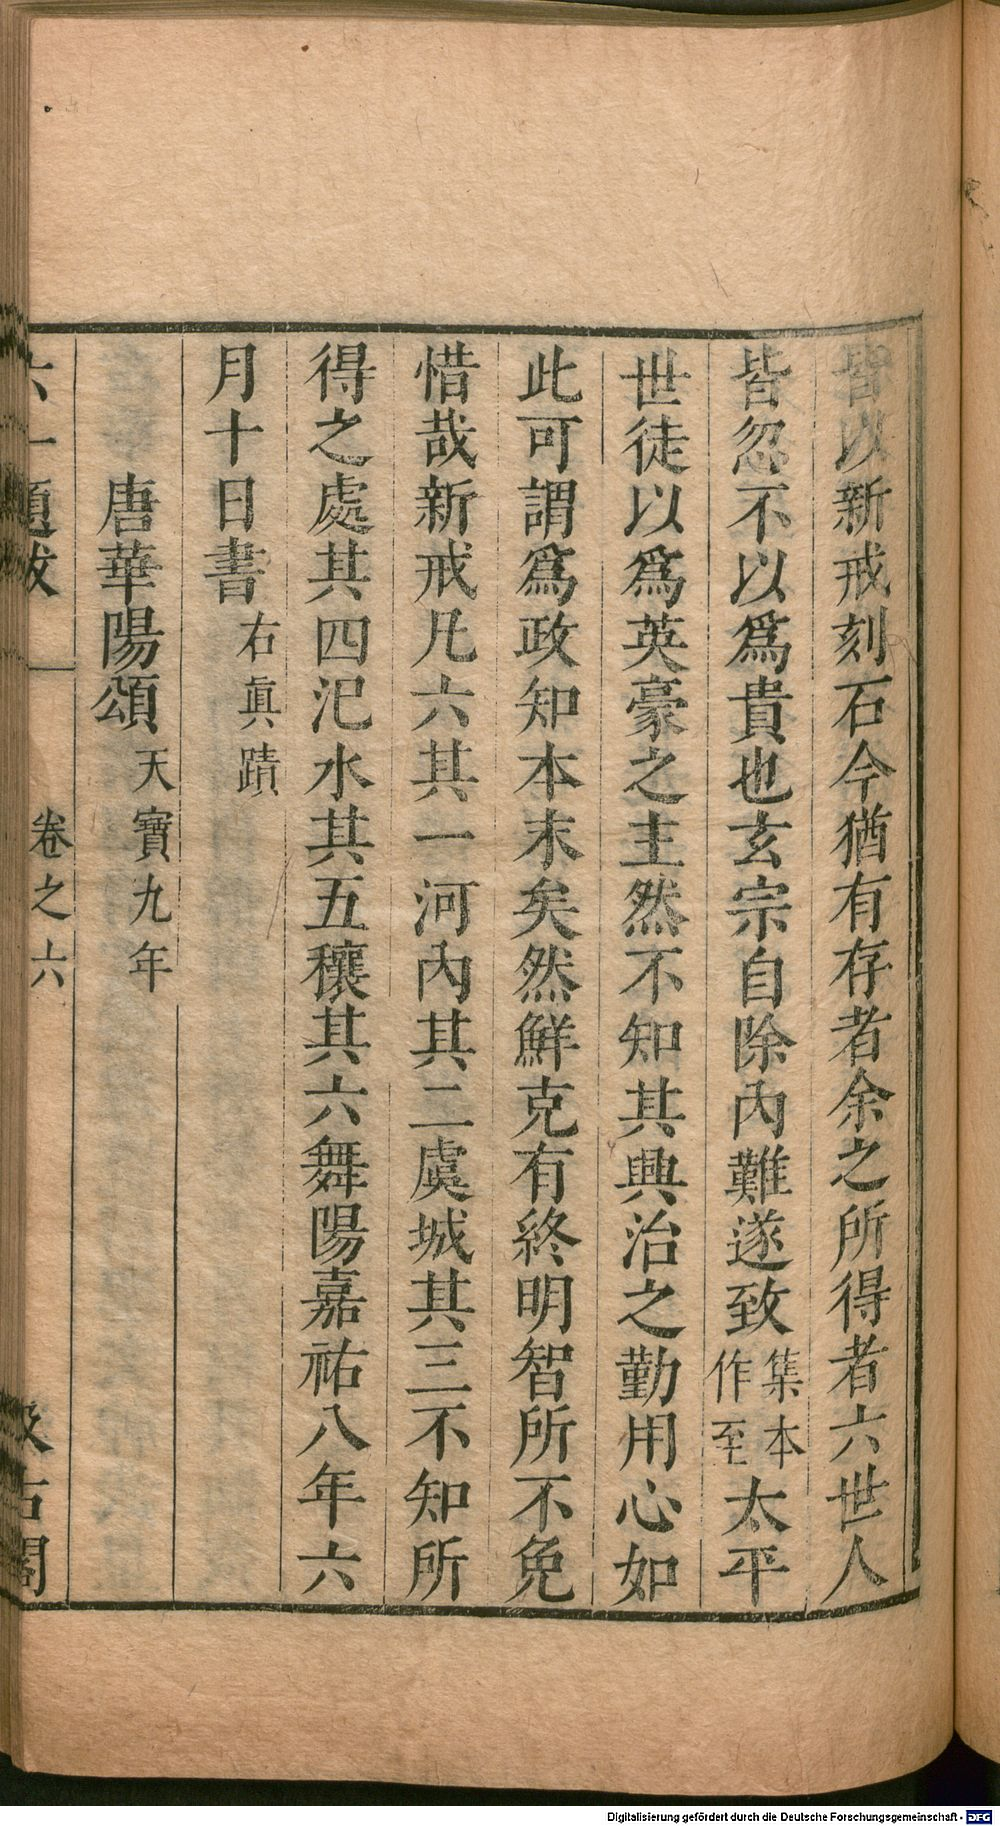 皆以新戒刻石今猶有存者余之所得者六世人
皆忽不以爲貴也玄宗自除內難遂致集本作至太平
世徒以爲英豪之主然不知其興治之勤用心如
此可謂爲政知本末矣然鮮克有終明智所不免
惜哉新戒凡六其一河內其二虞城其三不知所
得之處其四汜水其五穰其六舞陽嘉祐八年六
月十日書右眞蹟
唐華陽頌天寶九年
六一題跋 卷之六 汲古閣
Digitalisierung gefördert durch die Deutsche Forschungsgemeinschaft - DFG